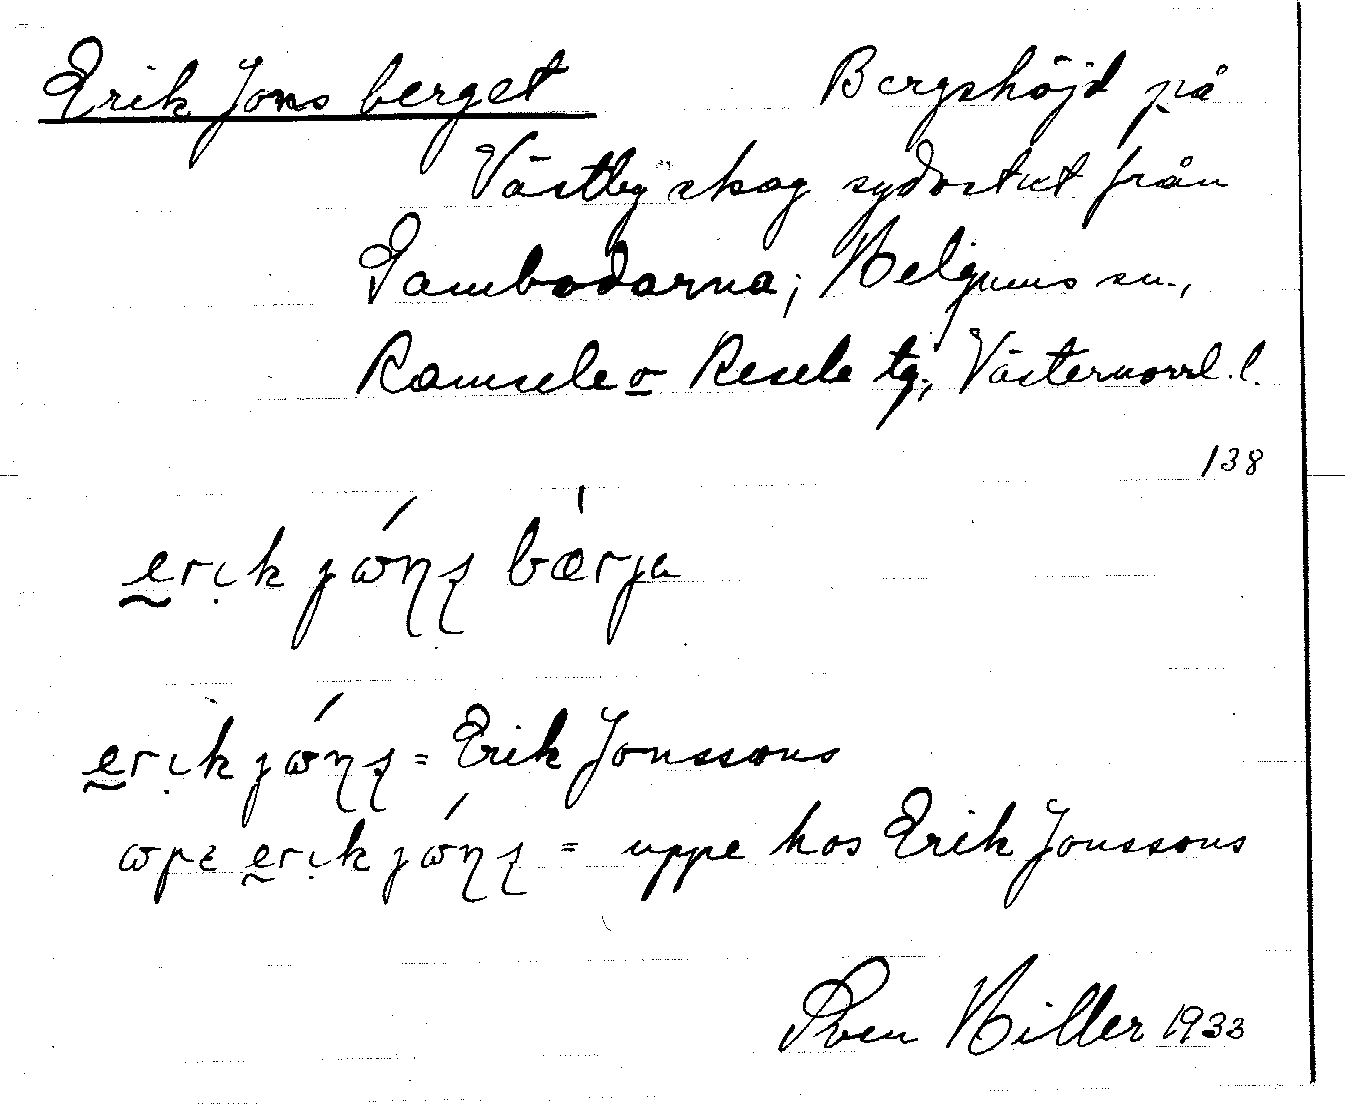 Erik Jons berget Bergshöjd på
Västby skog sydostut från
Sambodarna; Helgums sn.,
Ramsele o Resele tg; Västernorrl. l.
138
erik jóns bærja
erik jóns = Erik Jonssons
ɷpɛ erik jóns = uppe hos Erik Jonssons
Sven Hiller 1933